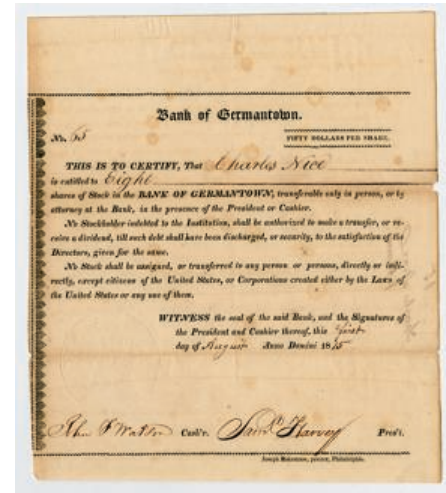 Bank of Germantown.
No. 65
FIFTY DOLLARS PER SHARE.
THIS IS TO CERTIFY, That Charles Nice
is entitled to Eight
shares of Stock in the BANK OF GERMANTOWN, transferable only in person, or by
attorney at the Bank, in the presence of the President or Cashier.
No Stockholder indebted to the Institution, shall be authorized to make a transfer, or re-
ceive a dividend, till such debt shall have been discharged, or security, to the satisfaction of the
Directors, given for the same.
No Stock shall be assigned, or transferred to any person or persons, directly or indi-
rectly, except citizens of the United States, or Corporations created either by the Laws of
the United States or any one of them.
WITNESS the seal of the said Bank, and the Signatures of
the President and Cashier thereof, this first
day of August Anno Domini 18
John F Watson Cash'r. Saml Harvey Pres't.
Joseph printer, Philadelphia.